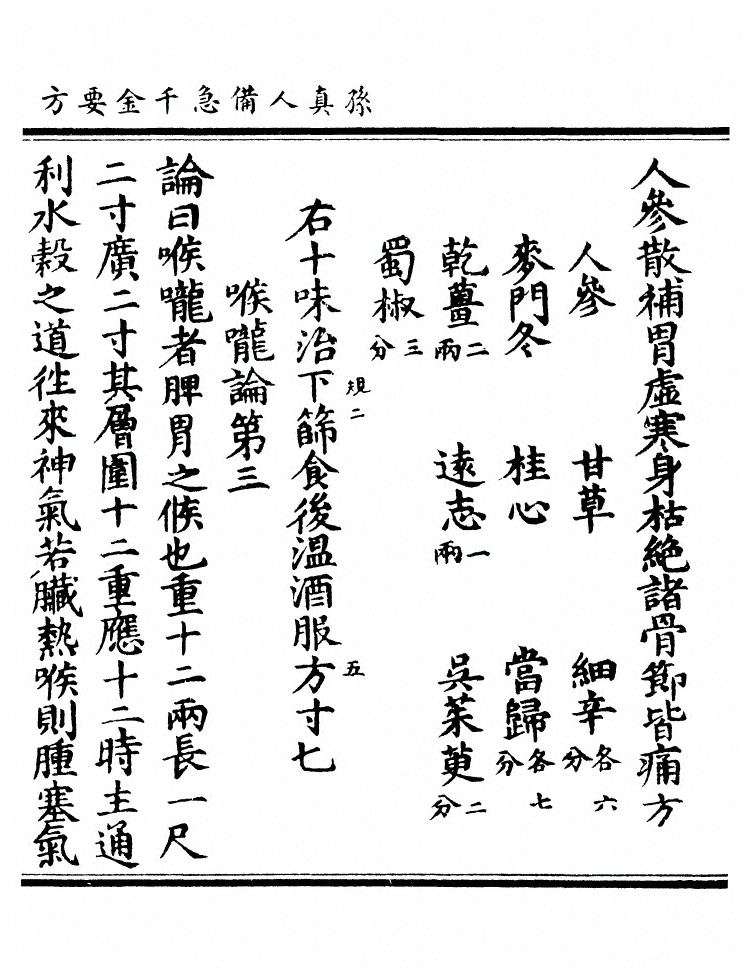 孫真人備急千金要方
人參散補胃虛寒身枯絕諸骨節皆痛方
人參 甘草 細辛各六分
麥門冬 桂心 當歸各七分
乾薑二兩 遠志一兩 吳茱萸二分
蜀椒三分
規二 五
右十味治下篩食後溫酒服方寸七
喉嚨論第三
論曰喉嚨者脾胃之候也重十二兩長一尺
二寸廣二寸其層圍十二重應十二時主通
利水穀之道往來神氣若臟熱喉則腫塞氣